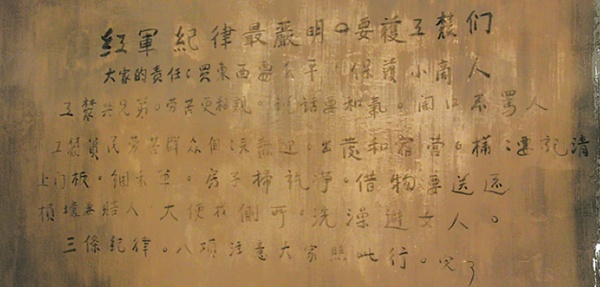 红軍紀律最嚴明。要護工農们
大家的責任：買東西要公平。保護小商人
工農共兄弟。勞苦更相親。説話要和氣。開口不罵人
工農貧民勞苦群众個：出發和宿营。樣：要記清
上门板。綑禾草。房子掃乾净。借物要送还
損壞要賠人 大便找側所。洗澡避女人。
三條紀律。八項注意大家照此行。完了